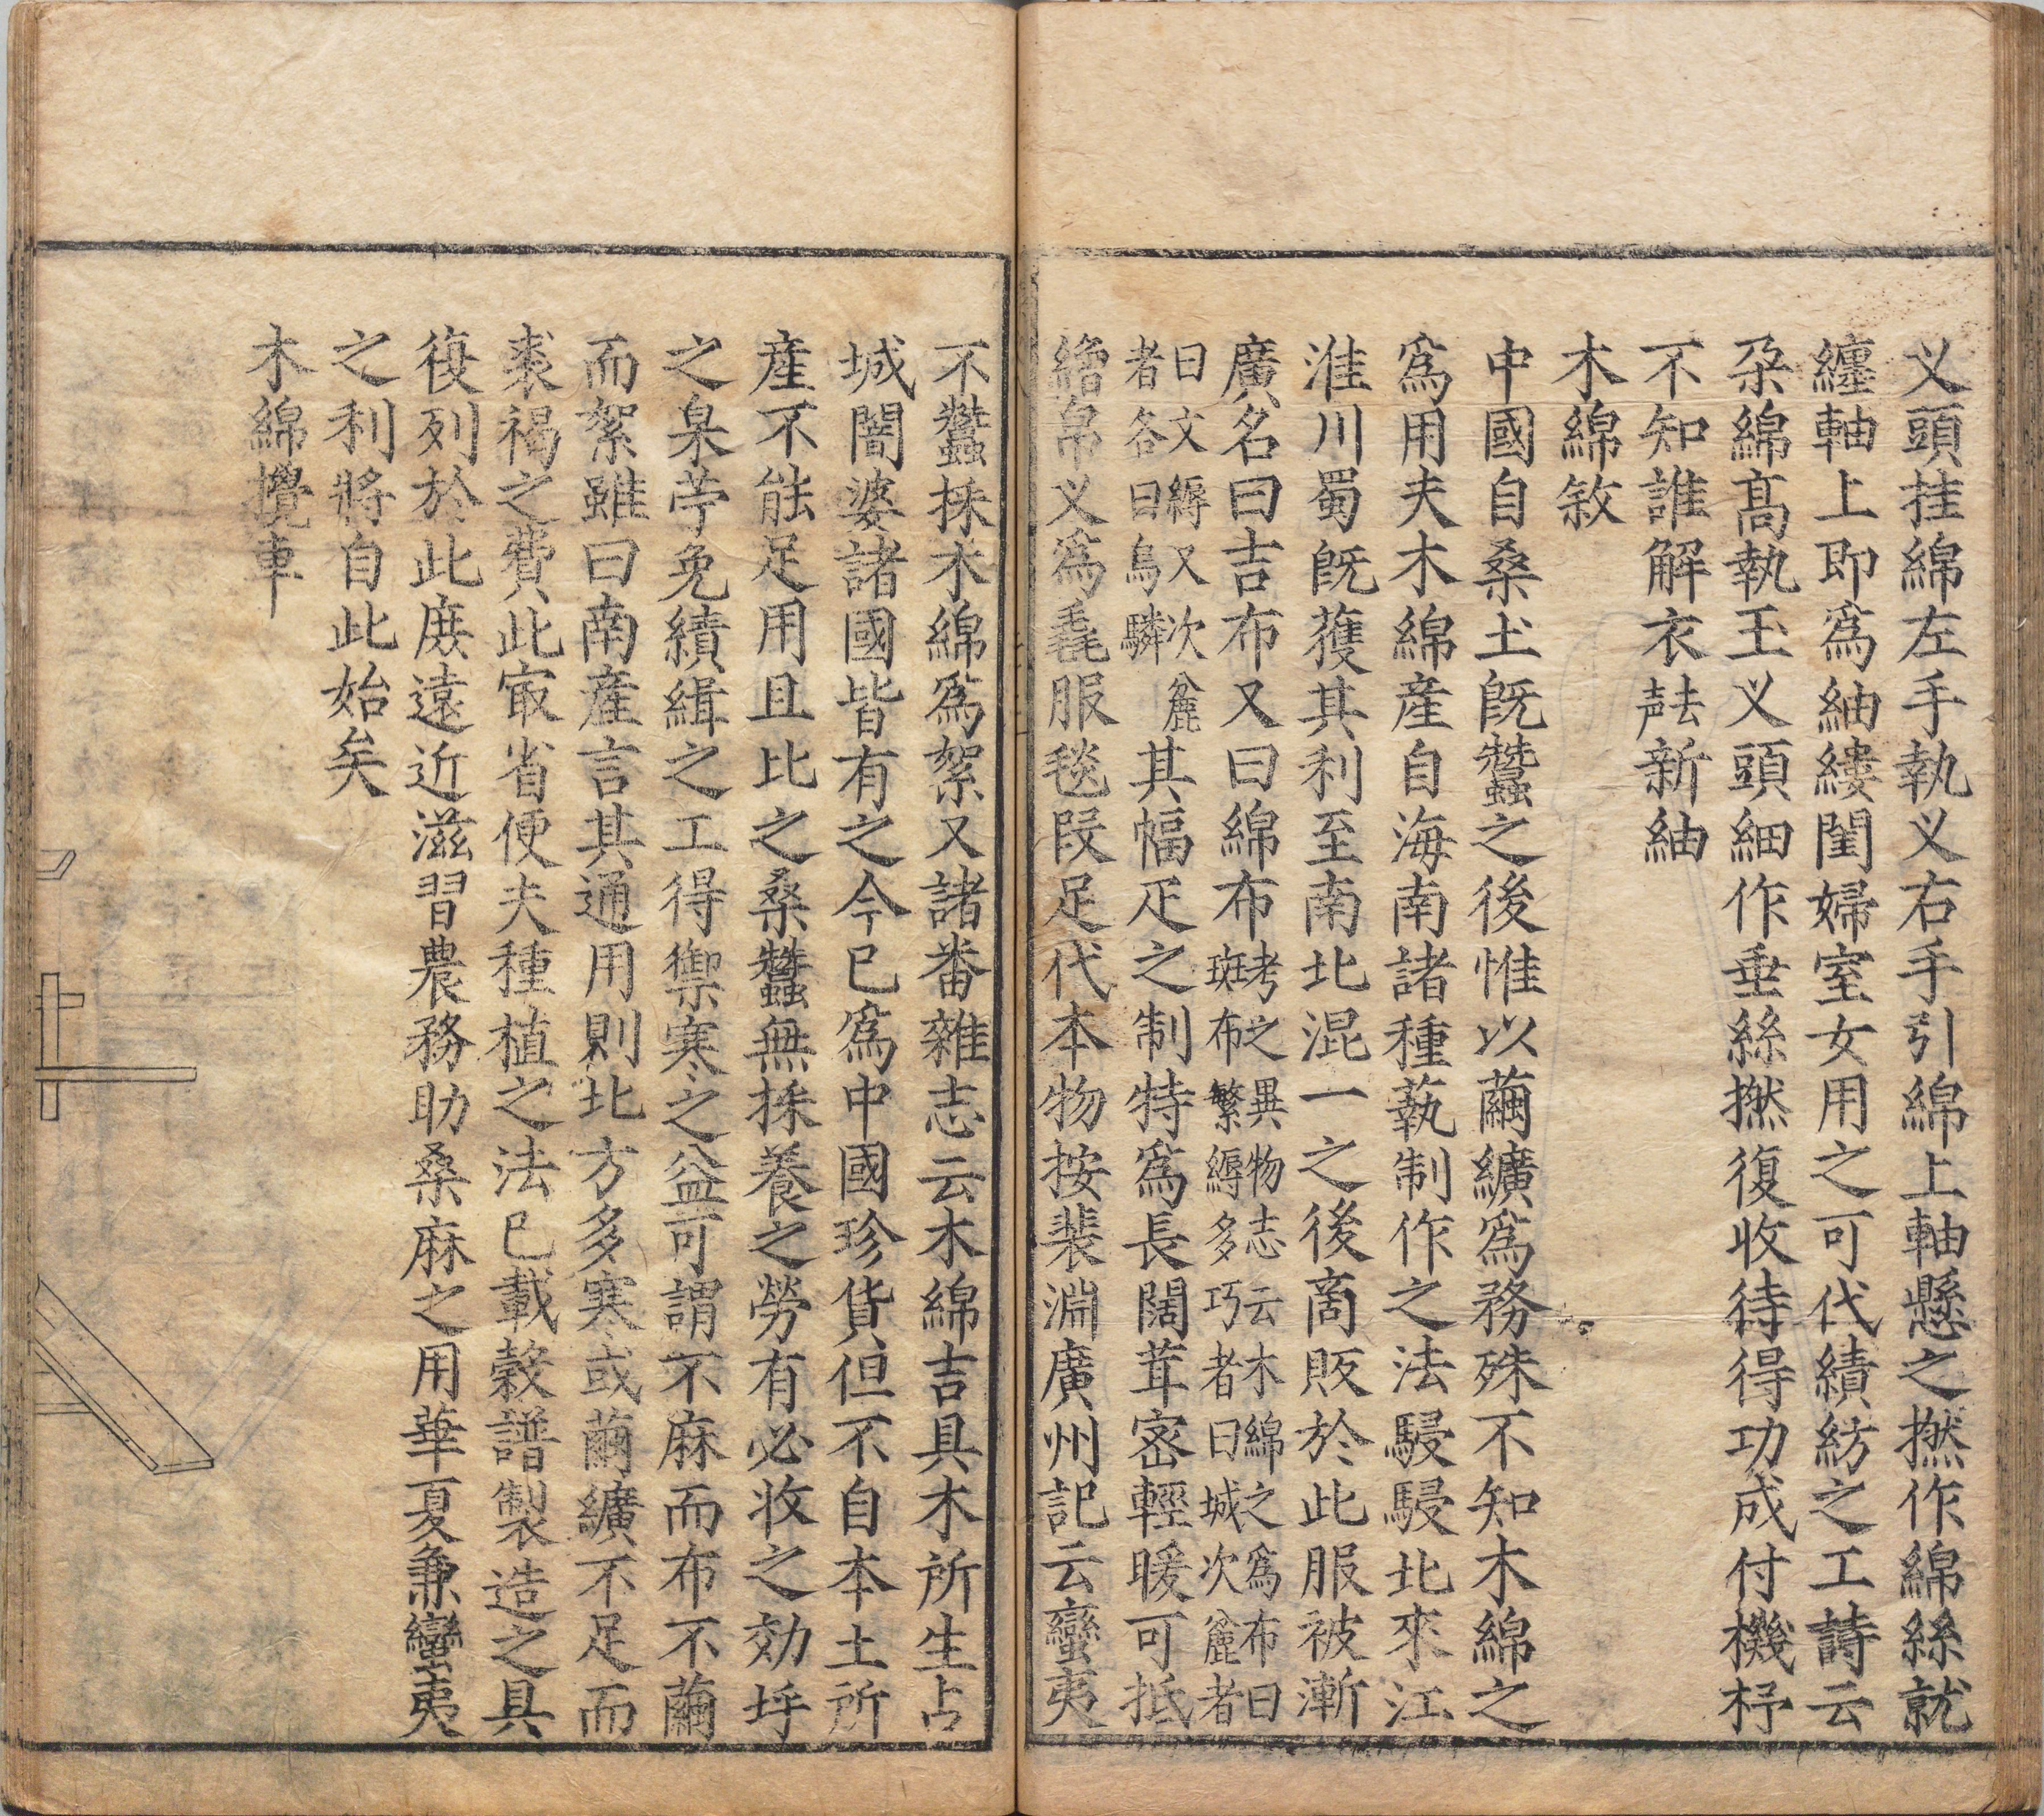 义頭挂綿左手執义右手引綿上軸懸之撚作綿絲就
纏軸上即爲紬縷閨婦室女用之可代績紡之工詩云
朶綿髙執玉义頭細作垂絲撚復收待得功成付機杼
不知誰解衣喆新紬
木綿敘
中國自桑土既蠶之後惟以繭纊爲務殊不知木綿之
爲用夫木綿産自海南諸種蓺制作之法駸駸北來江
淮川蜀既獲其利至南北混一之後商販於此服被漸
廣名曰吉布又曰綿布考之異物志云木綿之爲布曰
斑布繁縟多巧者曰城次麄者
曰文縟又次麄
者名曰烏驎其幅疋之制特爲長闊茸宻輕暖可抵
繒帛义爲毳服毯叚足代本物按裴淵廣州記云蠻夷
不蠶採木綿爲絮又諸番雜志云木綿吉具木所生占
城闍婆諸國皆有之今已爲中國珍貨但不自本土所
産不能足用且比之桑蠶無採養之勞有必收之効埒
之枲苧免績緝之工得禦寒之益可謂不麻而布不繭
而絮雖曰南産言其通用則北方多寒或繭纊不足而
裘褐之費此㝡省便夫種植之法已載榖譜製造之具
復列於此庻遠近滋習農務助桑麻之用華夏兼蠻夷
之利將自此始矣
木綿攪車